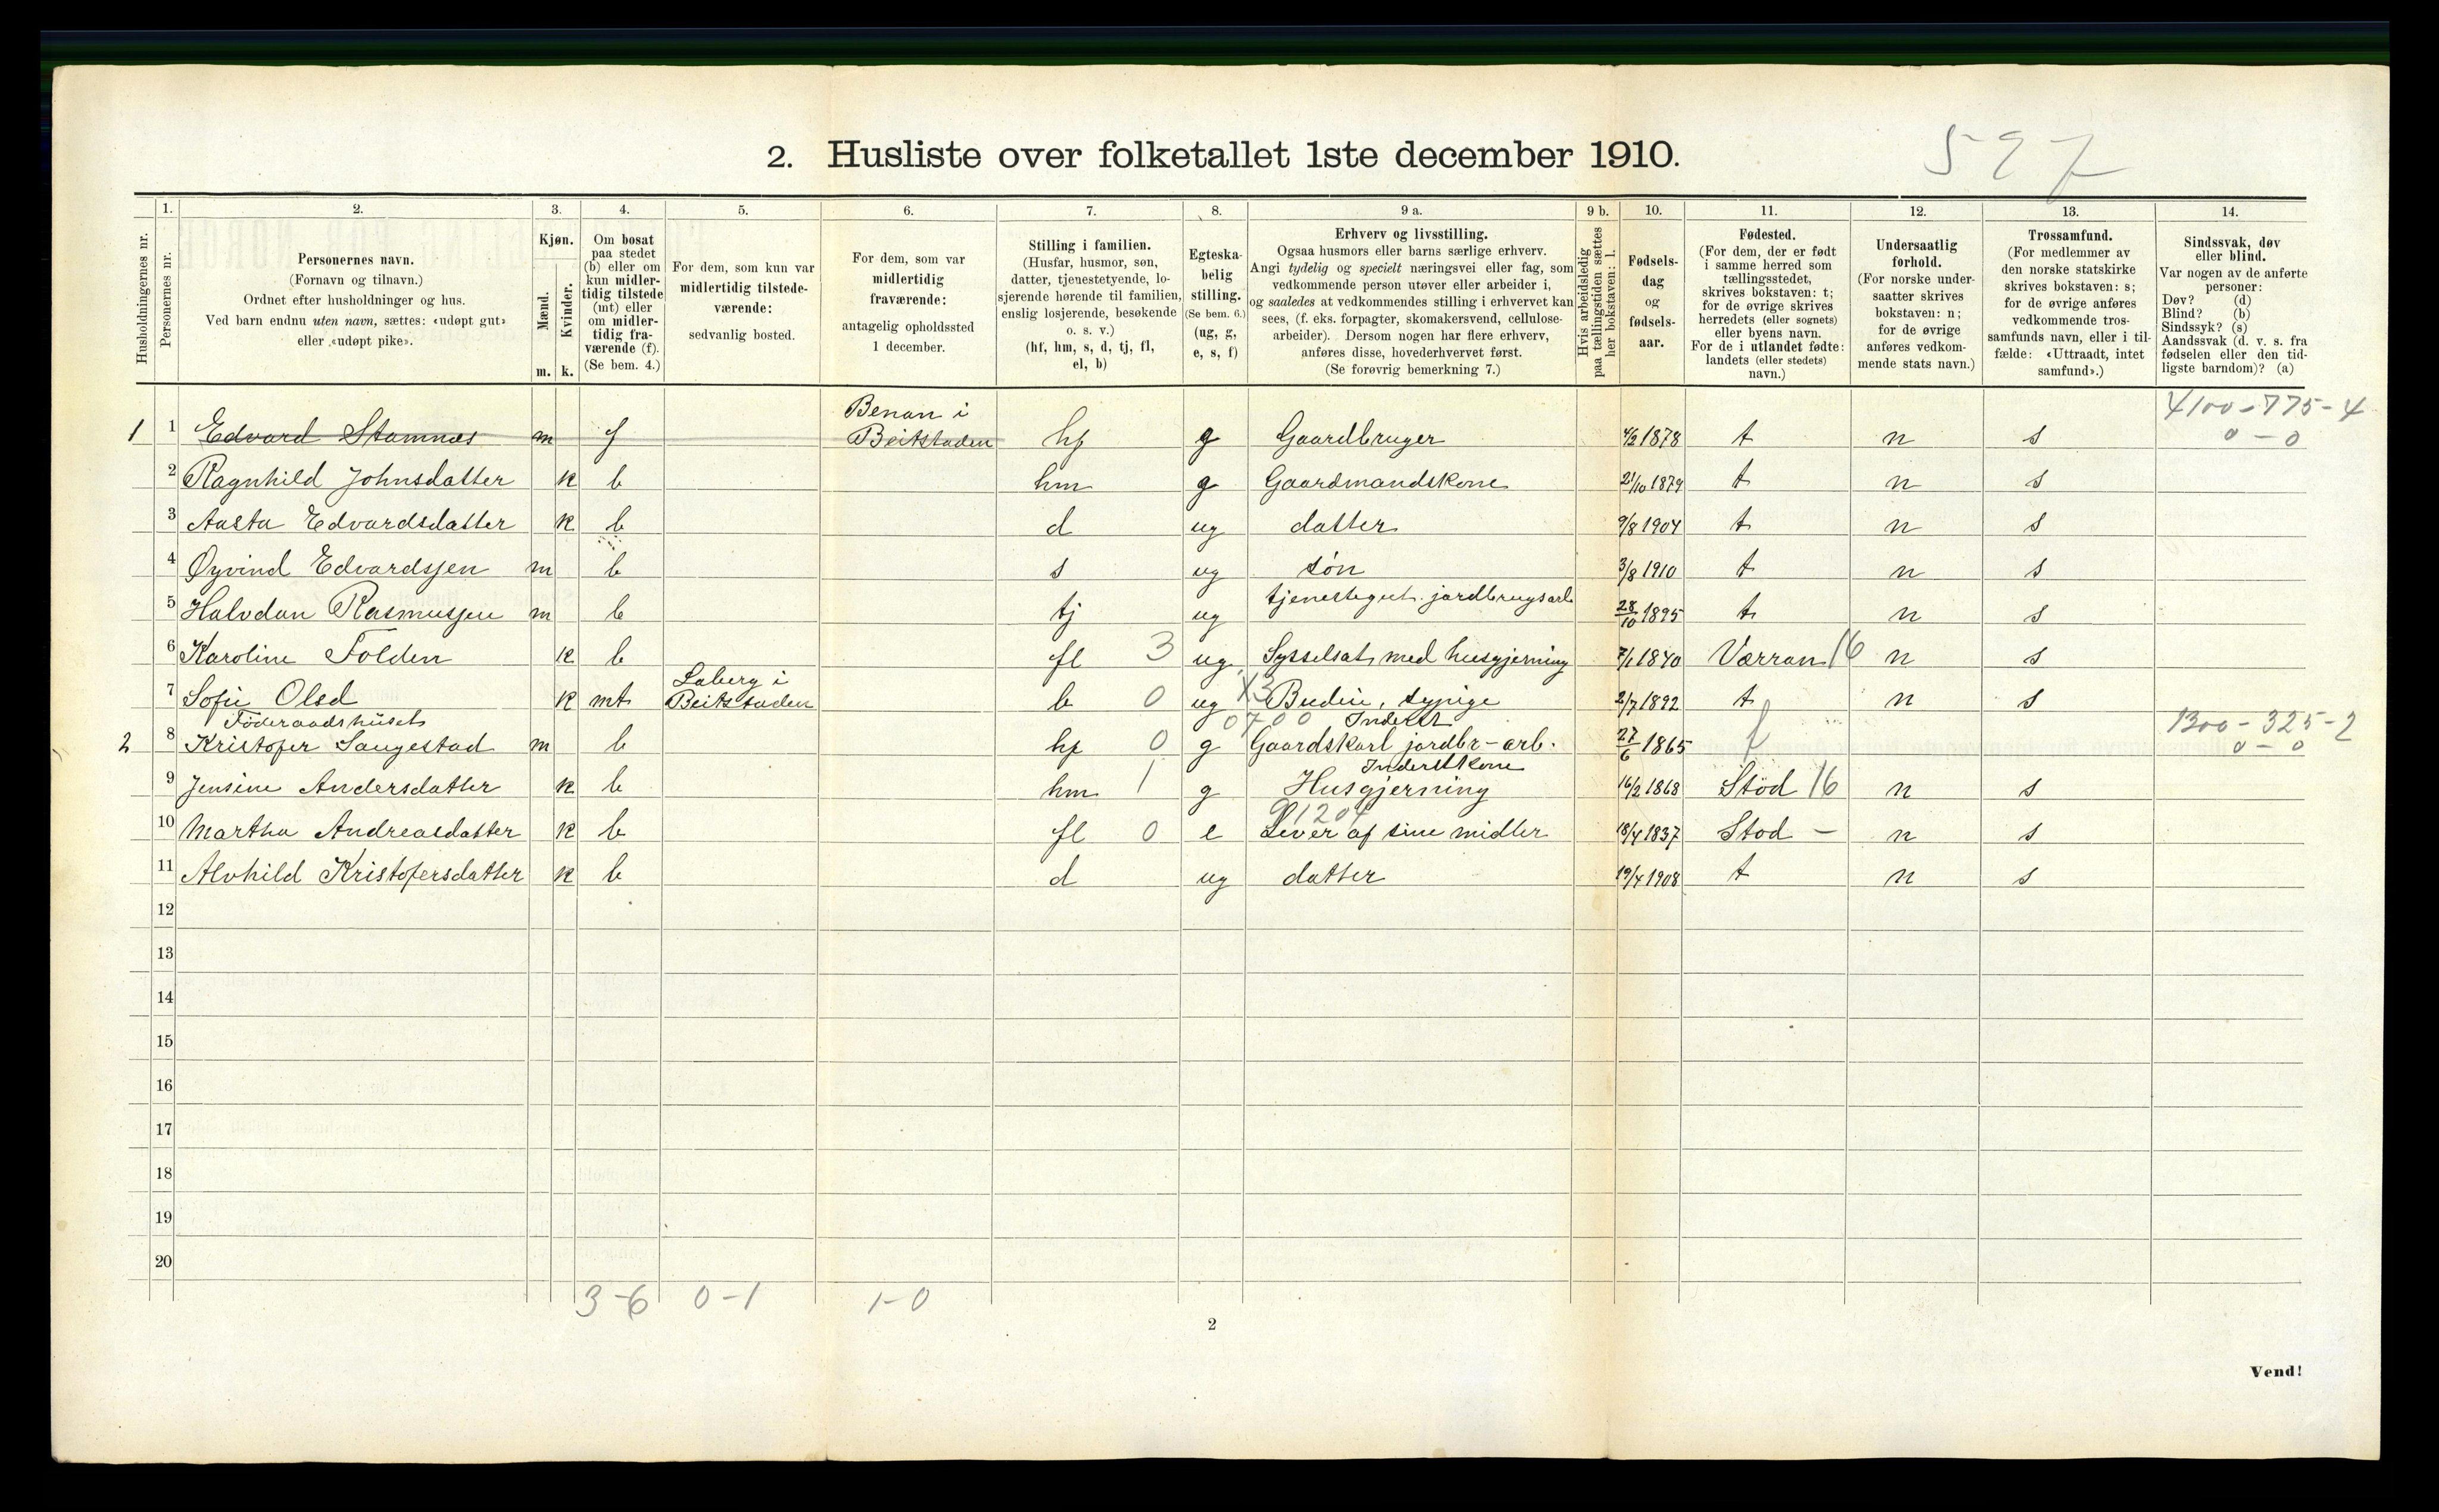 2. Husliste over folketallet 1ste december 1910.
597
Husholdningernes nr.
1.
Personernes nr.
2.
Personernes navn.
(Fornavn og tilnavn.)
Ordnet efter husholdninger og hus.
Ved barn endnu uten navn, sættes: «udøpt gut»
eller «udøpt pike».
3.
Kjøn.
Mænd.
Kvinder.
m. k.
4.
Om bosat
paa stedet
(b) eller om
kun midler-
tidig tilstede
(mt) eller
om midler-
tidig fra-
værende (f).
(Se bem. 4.)
5.
For dem, som kun var
midlertidig tilstede-
værende:
sedvanlig bosted.
6.
For dem, som var
midlertidig
fraværende:
antagelig opholdssted
1 december.
7.
Stilling i familien.
(Husfar, husmor, søn,
datter, tjenestetyende, lo-
sjerende hørende til familien,
enslig losjerende, besøkende
o. s. v.)
(hf, hm, s, d, tj, fl,
el, b)
8.
Egteska-
belig
stilling.
(Se bem. 6.)
(ug, g,
e, s, f)
9 a.
Erhverv og livsstilling.
Ogsaa husmors eller barns særlige erhverv.
Angi tydelig og specielt næringsvei eller fag, som
vedkommende person utøver eller arbeider i,
og saaledes at vedkommendes stilling i erhvervet kan
sees, (f. eks. forpagter, skomakersvend, cellulose-
arbeider). Dersom nogen har flere erhverv,
anføres disse, hovederhvervet først.
(Se forøvrig bemerkning 7.)
9 b.
Hvis arbeidsledig
paa tællingstiden sættes
her bokstaven: l.
10.
Fødsels-
dag
og
fødsels-
aar.
11.
Fødested.
(For dem, der er født
i samme herred som
tællingsstedet,
skrives bokstaven: t;
for de øvrige skrives
herredets (eller sognets)
eller byens navn.
For de i utlandet fødte:
landets (eller stedets)
navn.)
12.
Undersaatlig
forhold.
(For norske under-
saatter skrives
bokstaven: n;
for de øvrige
anføres vedkom-
mende stats navn.)
13.
Trossamfund.
(For medlemmer av
den norske statskirke
skrives bokstaven: s;
for de øvrige anføres
vedkommende tros-
samfunds navn, eller i til-
fælde: «Uttraadt, intet
samfund».)
14.
Sindssvak, døv
eller blind.
Var nogen av de anførte
personer:
Døv? (d)
Blind? (b)
Sindssyk? (s)
Aandssvak (d. v. s. fra
fødselen eller den tid-
ligste barndom)? (a)
Benan i 4100-775-4
1 1 Edvard Stamnes m f Beitstaden hf g Gaardbruger 4/2 1878 t n s 0-0
2 Ragnhild Johnsdatter k b hm g Gaardmandskone 21/10 1879 t n s
3 Aasta Edvardsdatter k b d ug datter 9/8 1904 t n s
4 Øyvind Edvardsjen m b s ug søn 3/8 1910 t n s
5 Halvdan Rasmusjen m b tj ug tjenestegut. jordbrugsarb 28/10 1895 t n s
6 Karoline Folden k b fl 3 ug Sysselsat med husgjerning 7/1 1840 Værran 16 n s
Saberg i
7 Sofie Olsd k mt Beitstaden b 0 ug X3 Budeie, sypige 2/7 1892 t n s
Föderaadshuset 0700 Inderst 1300-325-2
2 8 Kristofer Saugestad m b hf 0 g Gaardskarl jordbr-arb. 27/6 1865 t 0-0
Inderstkone
9 Jensine Andersdatter k b hm 1 g Husgjerning 16/2 1868 Stöd 16 n s
91204
10 Martha Andreasdatter k b fl 0 e Lever af sine midler 18/4 1837 Stod - n s
11 Alvhild Kristofersdatter k b d ug datter 19/4 1908 t n s
12
13
14
15
16
17
18
19
20
3-6 0-1 1-0
2
Vend!